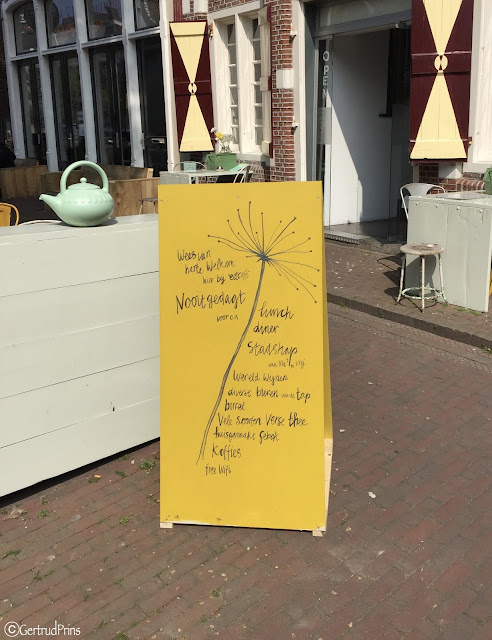 OPEN
Wees van
harte welkom
hier bij
Nooitgedagt
voor een
lunch
diner
Stadshap
van
Wereld wijnen
diverse bieren van de tap
borrel
Vele soorten Verse thee
huisgemaakt gebak
Koffies
free wifi
©GertrudPrins